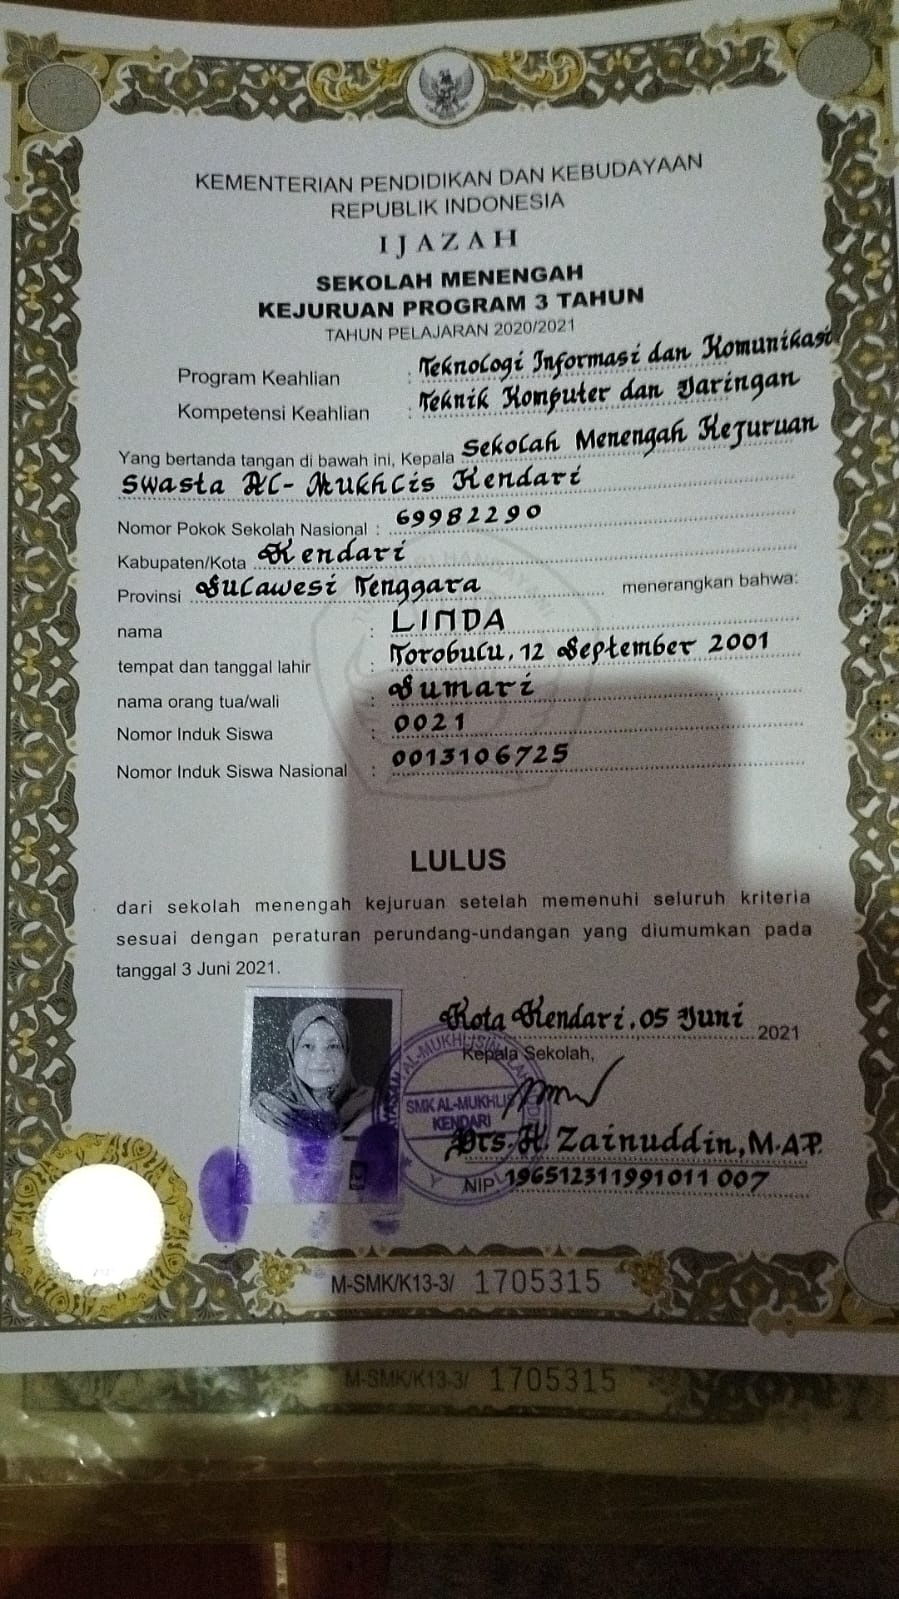 KEMENTERIAN PENDIDIKAN DAN KEBUDAYAAN
REPUBLIK INDONESIA
IJAZAH
SEKOLAH MENENGAH
KEJURUAN PROGRAM 3 TAHUN
TAHUN PELAJARAN 2020/2021
Program Keahlian : Teknologi Informasi dan Komunikasi
Kompetensi Keahlian : Teknik Komputer dan Jaringan
Yang bertanda tangan di bawah ini, Kepala Sekolah Menengah Kejuruan
Swasta Al-Mukhlis Kendari
Nomor Pokok Sekolah Nasional : 69982290
Kabupaten/Kota Kendari
Provinsi Sulawesi Tenggara menerangkan bahwa:
nama : LINDA
tempat dan tanggal lahir : Torobulu, 12 September 2001
nama orang tua/wali : Sumari
Nomor Induk Siswa : 0021
Nomor Induk Siswa Nasional : 0013106725
LULUS
dari sekolah menengah kejuruan setelah memenuhi seluruh kriteria
sesuai dengan peraturan perundang-undangan yang diumumkan pada
tanggal 3 Juni 2021.
Kota Kendari, 05 Juni 2021
Kepala Sekolah,
SMK AL-MUKHLIS
KENDARI
Drs. H. Zainuddin, M.AP.
NIP 196512311991011 007
M-SMK/K13-3/ 1705315
M-SMK/K13-3/ 1705315